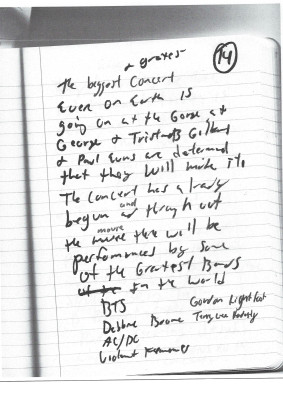 & greatest
14
The biggest Concert
Ever on Earth is
going on at the Gorge at
George & Tristan's Gilbert
& Paul Evans are determined
that they will make it.
The Concert has already
begun and through out
the movie there will be
performances by some
of the Greatest Bands
in the world
BTS
Gordon Lightfoot
Debbie Boone
AC/DC
Violent Femmes